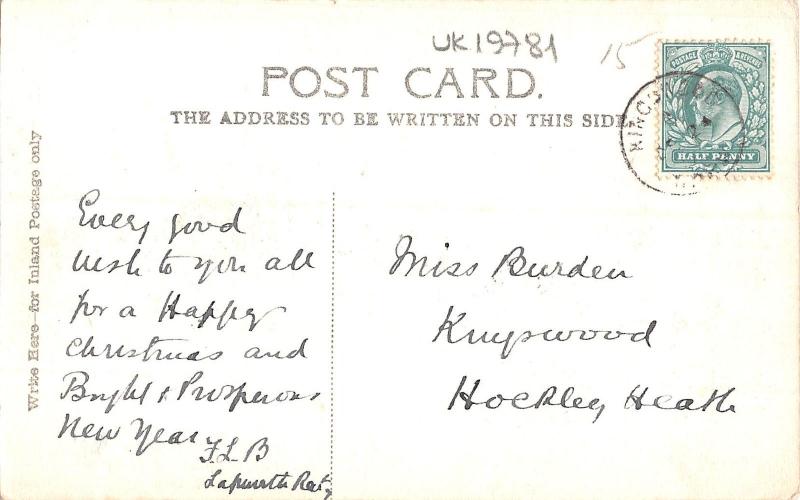 UK19781
15
POST CARD.
THE ADDRESS TO BE WRITTEN ON THIS SIDE
POSTAGE & REVENUE
HALF PENNY
Write Here—for Inland Postage only
Every good
wish to you all
for a Happy
Christmas and
Bright & Prosperous
New Year
F.L.B
Lapworth Rect
Miss Burden
Kingswood
Hockley Heath